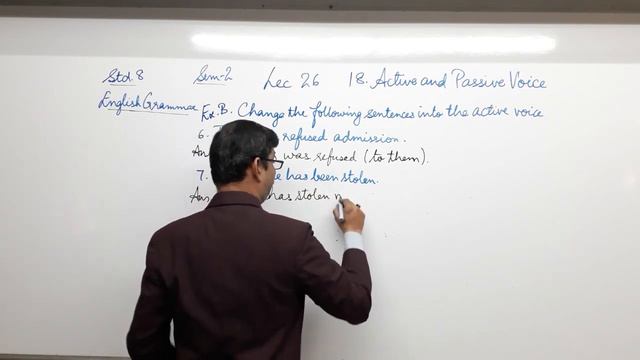 Std. 8 Sem-2 Lec 26 18. Active and Passive Voice
English Grammar Ex. B. Change the following sentences into the active voice
6. refused admission.
was refused (to them).
7. has been stolen.
has stolen